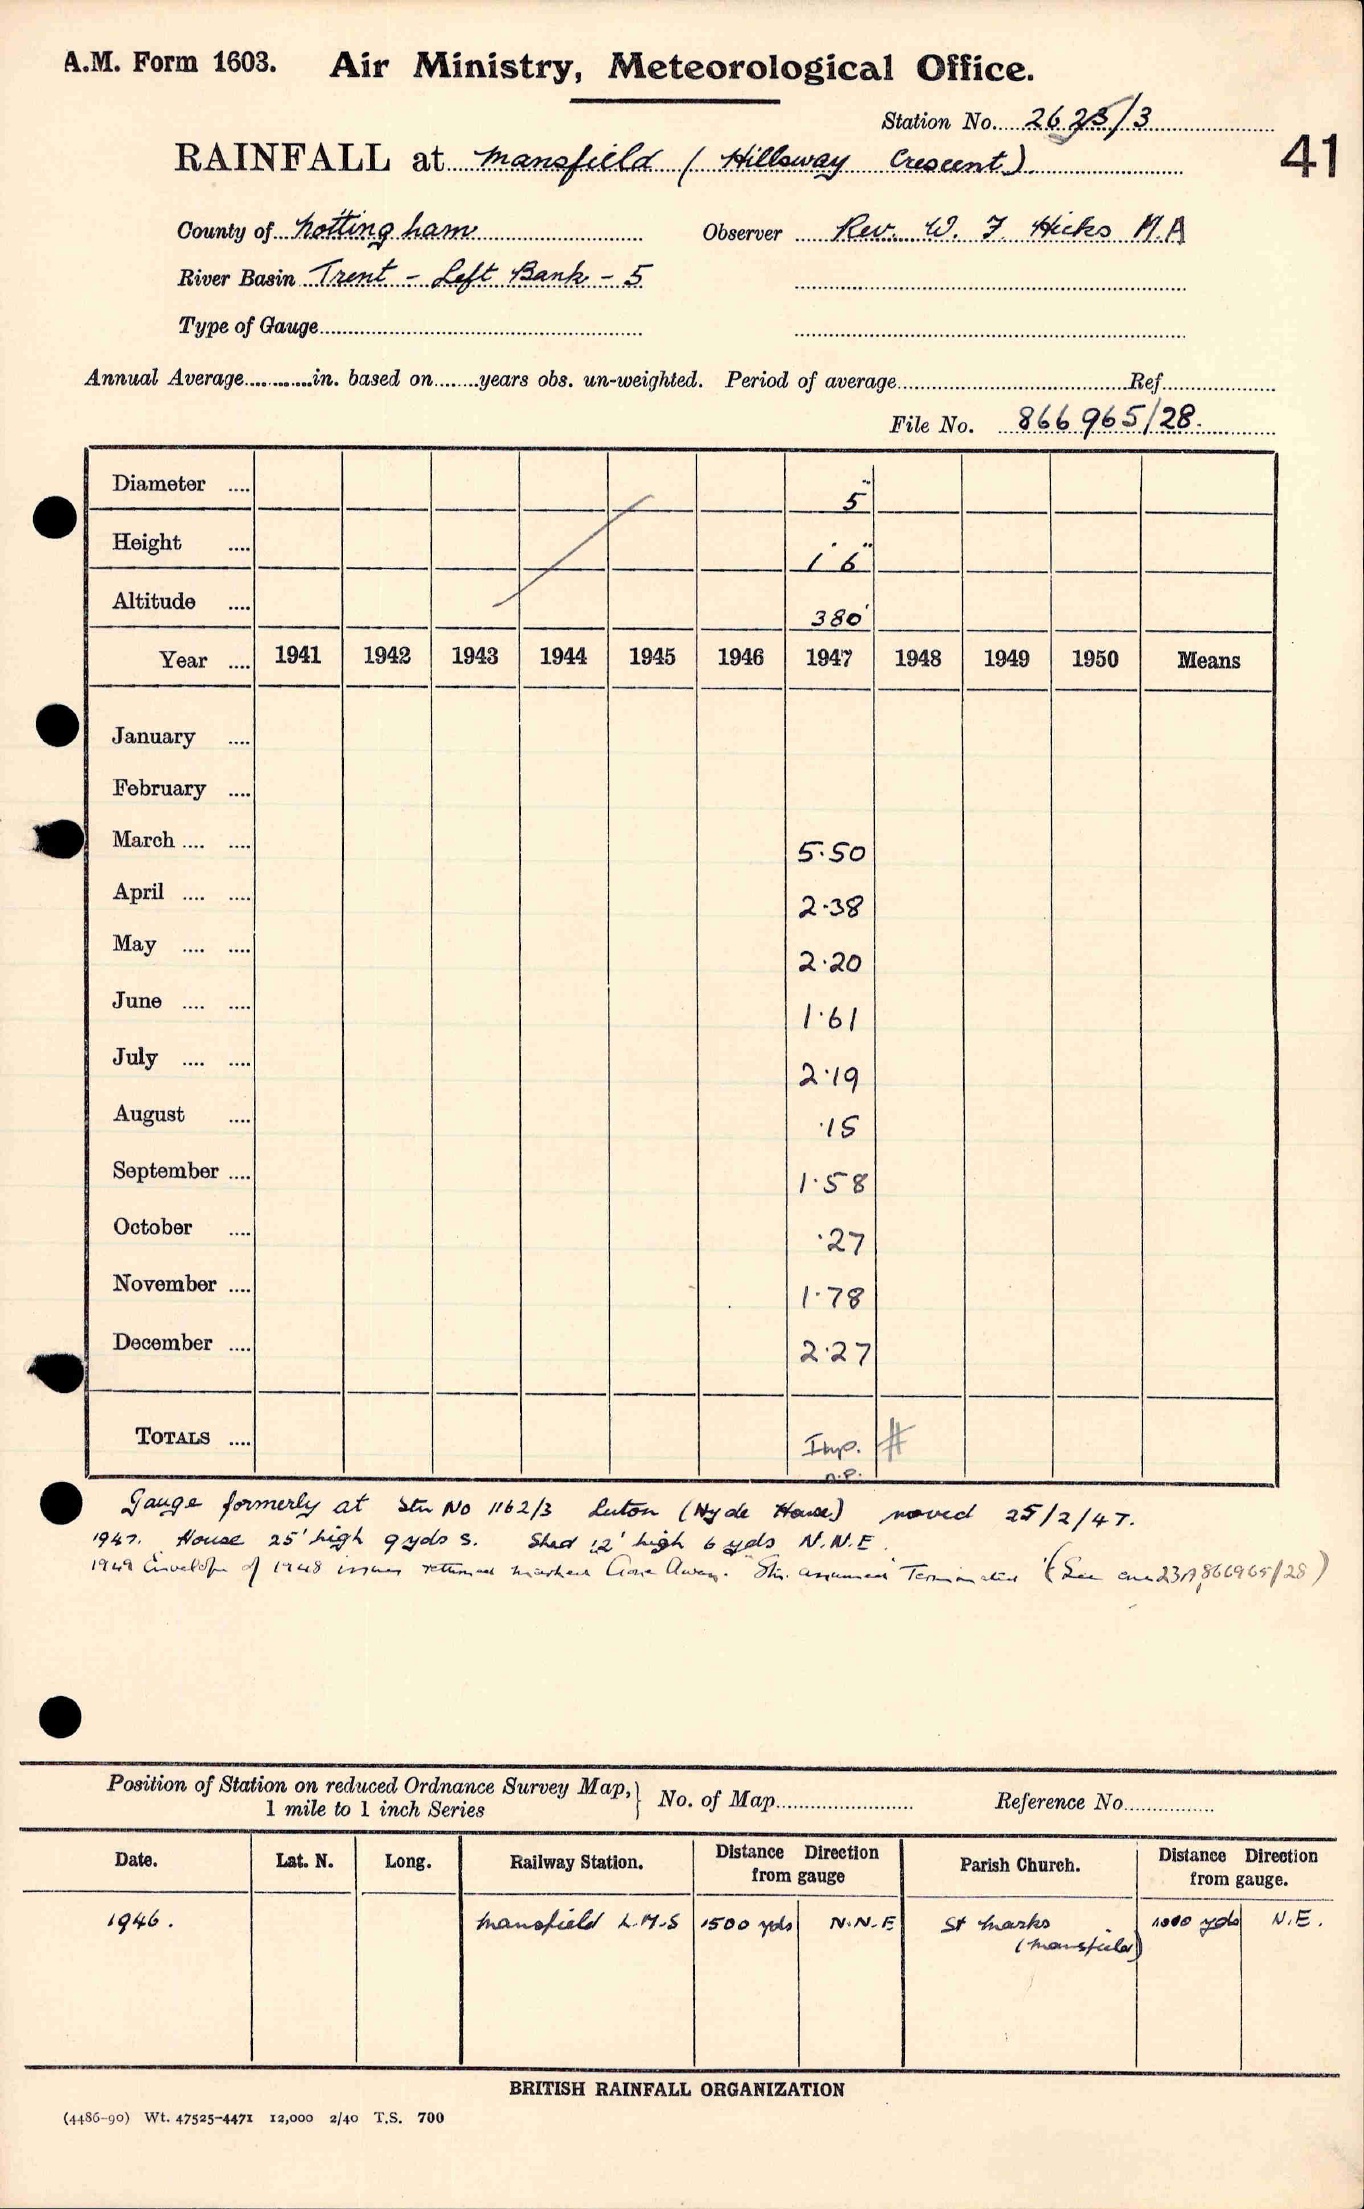 A.M. Form 1603. Air Ministry, Meteorological Office.
Station No. 2623/3
41
RAINFALL at Mansfield (Hillsway Crescent)
County of Nottingham Observer Rev. W. F. Hicks M.A
River Basin Trent - Left Bank - 5
Type of Gauge
Annual Average............in. based on........years obs. un-weighted. Period of average Ref
File No. 866965/28.
Diameter .... 5"
Height .... 1' 6"
Altitude .... 380'
Year .... 1941 1942 1943 1944 1945 1946 1947 1948 1949 1950 Means
January ....
February ....
March .... .... 5·50
April .... .... 2·38
May .... .... 2·20
June .... .... 1·61
July .... .... 2·19
August .... ·15
September .... 1·58
October .... ·27
November .... 1·78
December .... 2·27
TOTALS .... Imp. #
n.p.
Gauge formerly at Stn No 1162/3 Luton (Hyde House) moved 25/2/47.
1947. House 25' high 9 yds S. Shed 12' high 6 yds N.N.E.
1949 Envelope of 1948 issues returned marked Gone Away. Stn. assumed Terminated (See 23A, 866965/28)
Position of Station on reduced Ordnance Survey Map, 1 mile to 1 inch Series } No. of Map Reference No
Date. Lat. N. Long. Railway Station. Distance Direction from gauge Parish Church. Distance Direction from gauge.
1946. Mansfield L.M.S 1500 yds N.N.E St Marks (Mansfield) 1000 yds N.E.
BRITISH RAINFALL ORGANIZATION
(4486-90) Wt. 47525-4471 12,000 2/40 T.S. 700